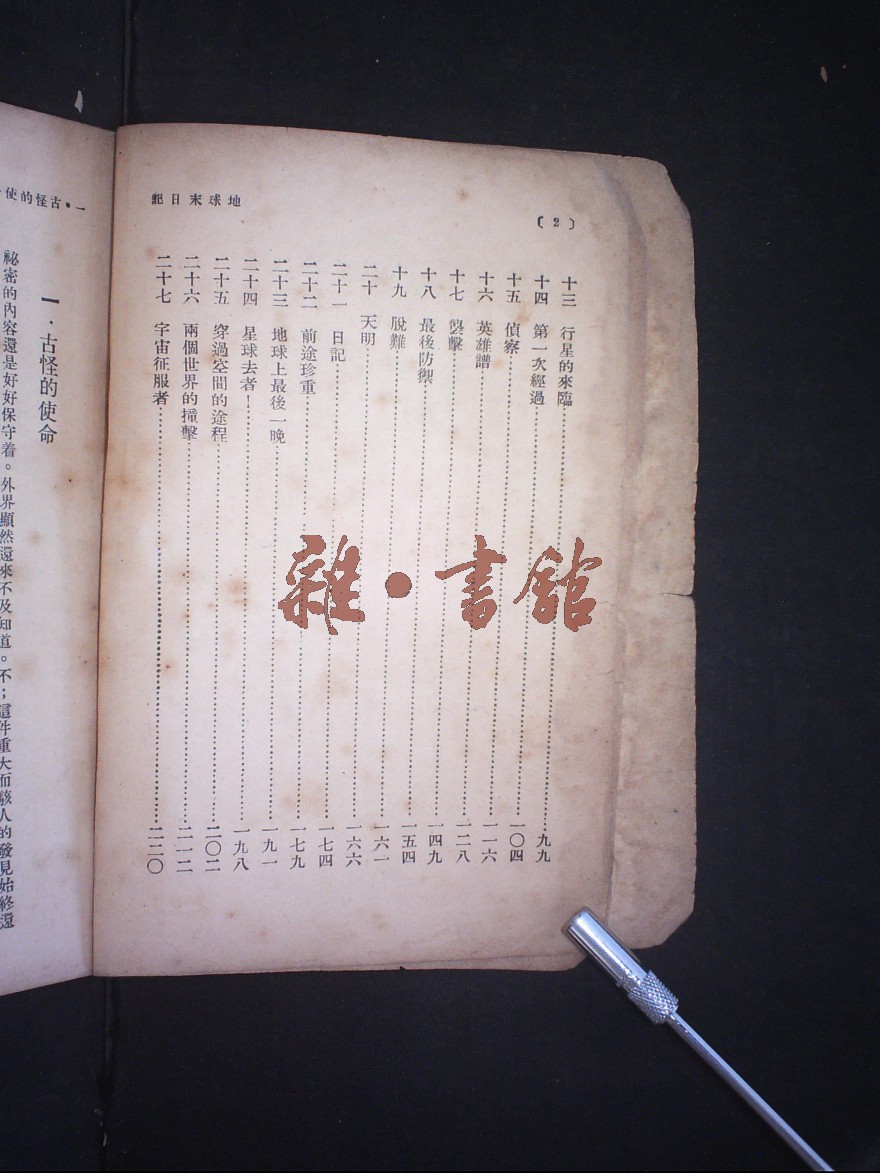 地球末日記
〔2〕
十三 行星的來臨……九九
十四 第一次經過……一〇四
十五 偵察……一一六
十六 英雄譜……一二八
十七 襲擊……一四九
十八 最後防禦……一五四
十九 脫難……一六一
二十 天明……一六六
二十一 日記……一七四
二十二 前途珍重……一七九
二十三 地球上最後一晚……一九一
二十四 星球去者！……一九八
二十五 穿過空間的途程……二〇二
二十六 兩個世界的掃擊……二一二
二十七 宇宙征服者……二二〇
雜·書館
一·古怪的使
一·古怪的使命
祕密的內容還是好好保守着。外界顯然還來不及知道。不；這件重大而駭人的發見始終還